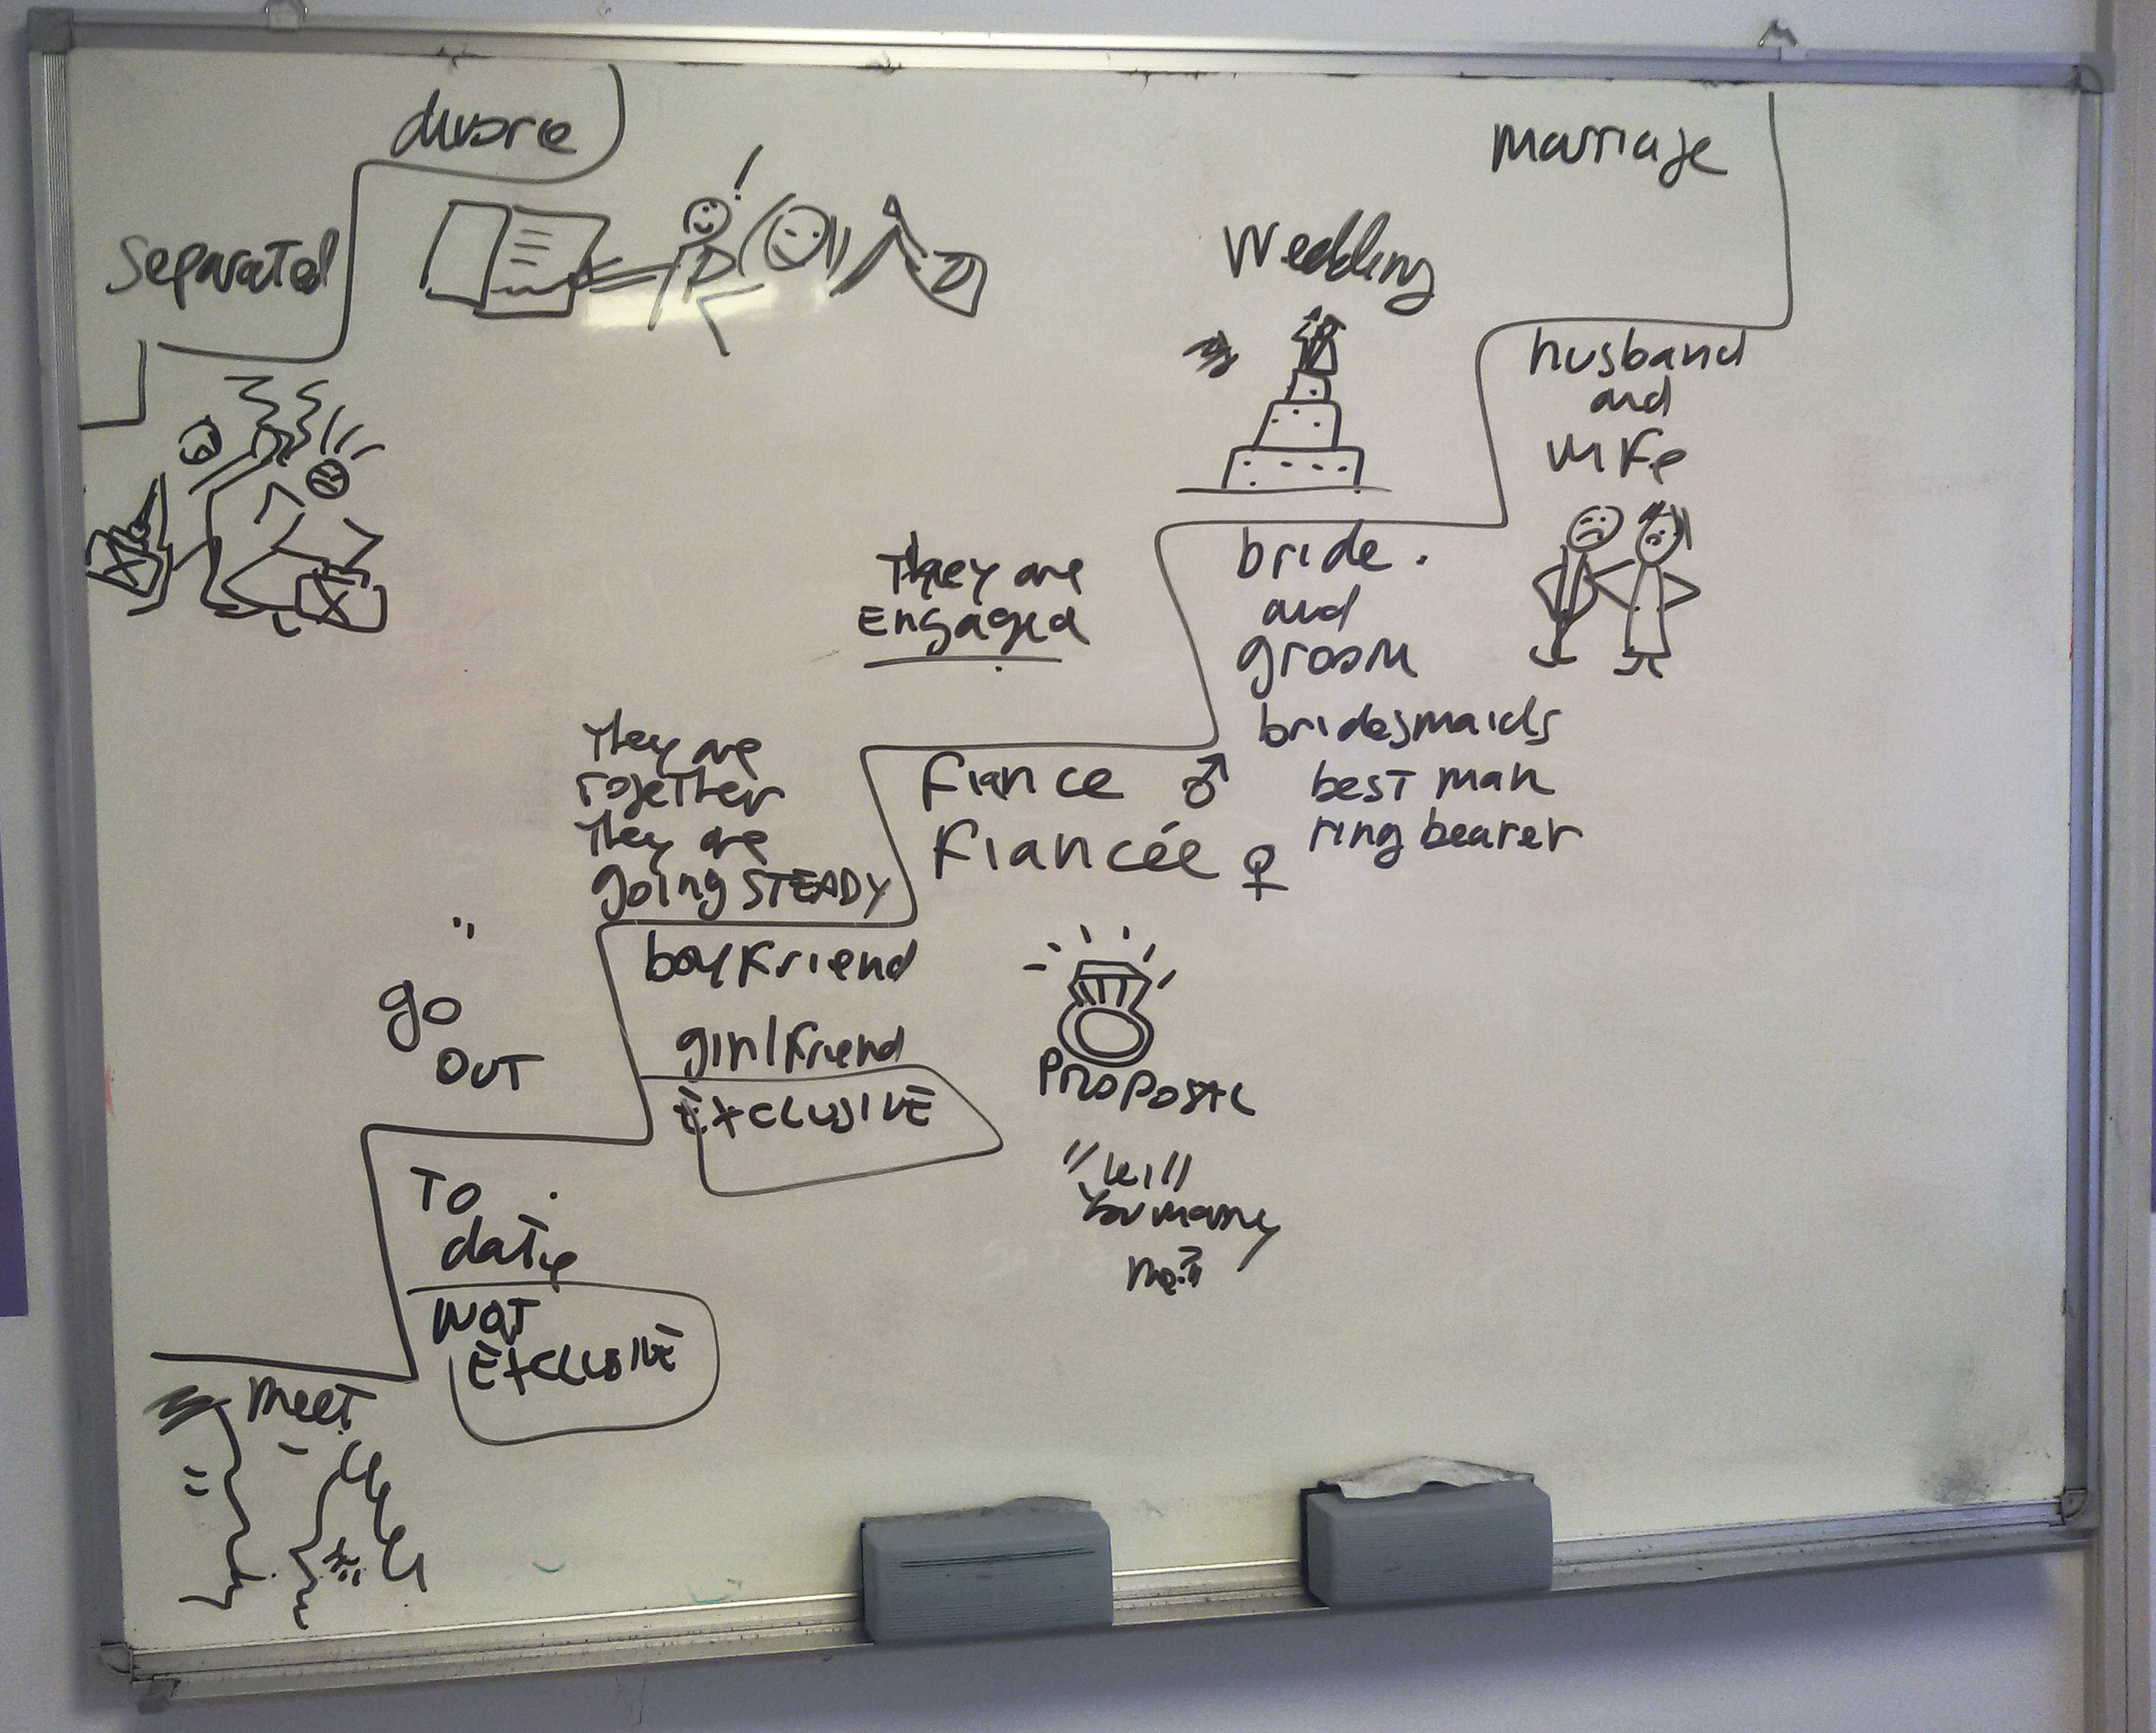 divorce
separated
marriage
Wedding
husband
and
wife
They are
Engaged
bride
and
groom
bridesmaids
best man
ring bearer
They are
together
They are
going STEADY
fiance ♂
Fiancée ♀
go
OUT
boyfriend
girlfriend
EXCLUSIVE
PROPOSAL
"Will
You marry
me?"
TO
date
NOT
EXCLUSIVE
meet